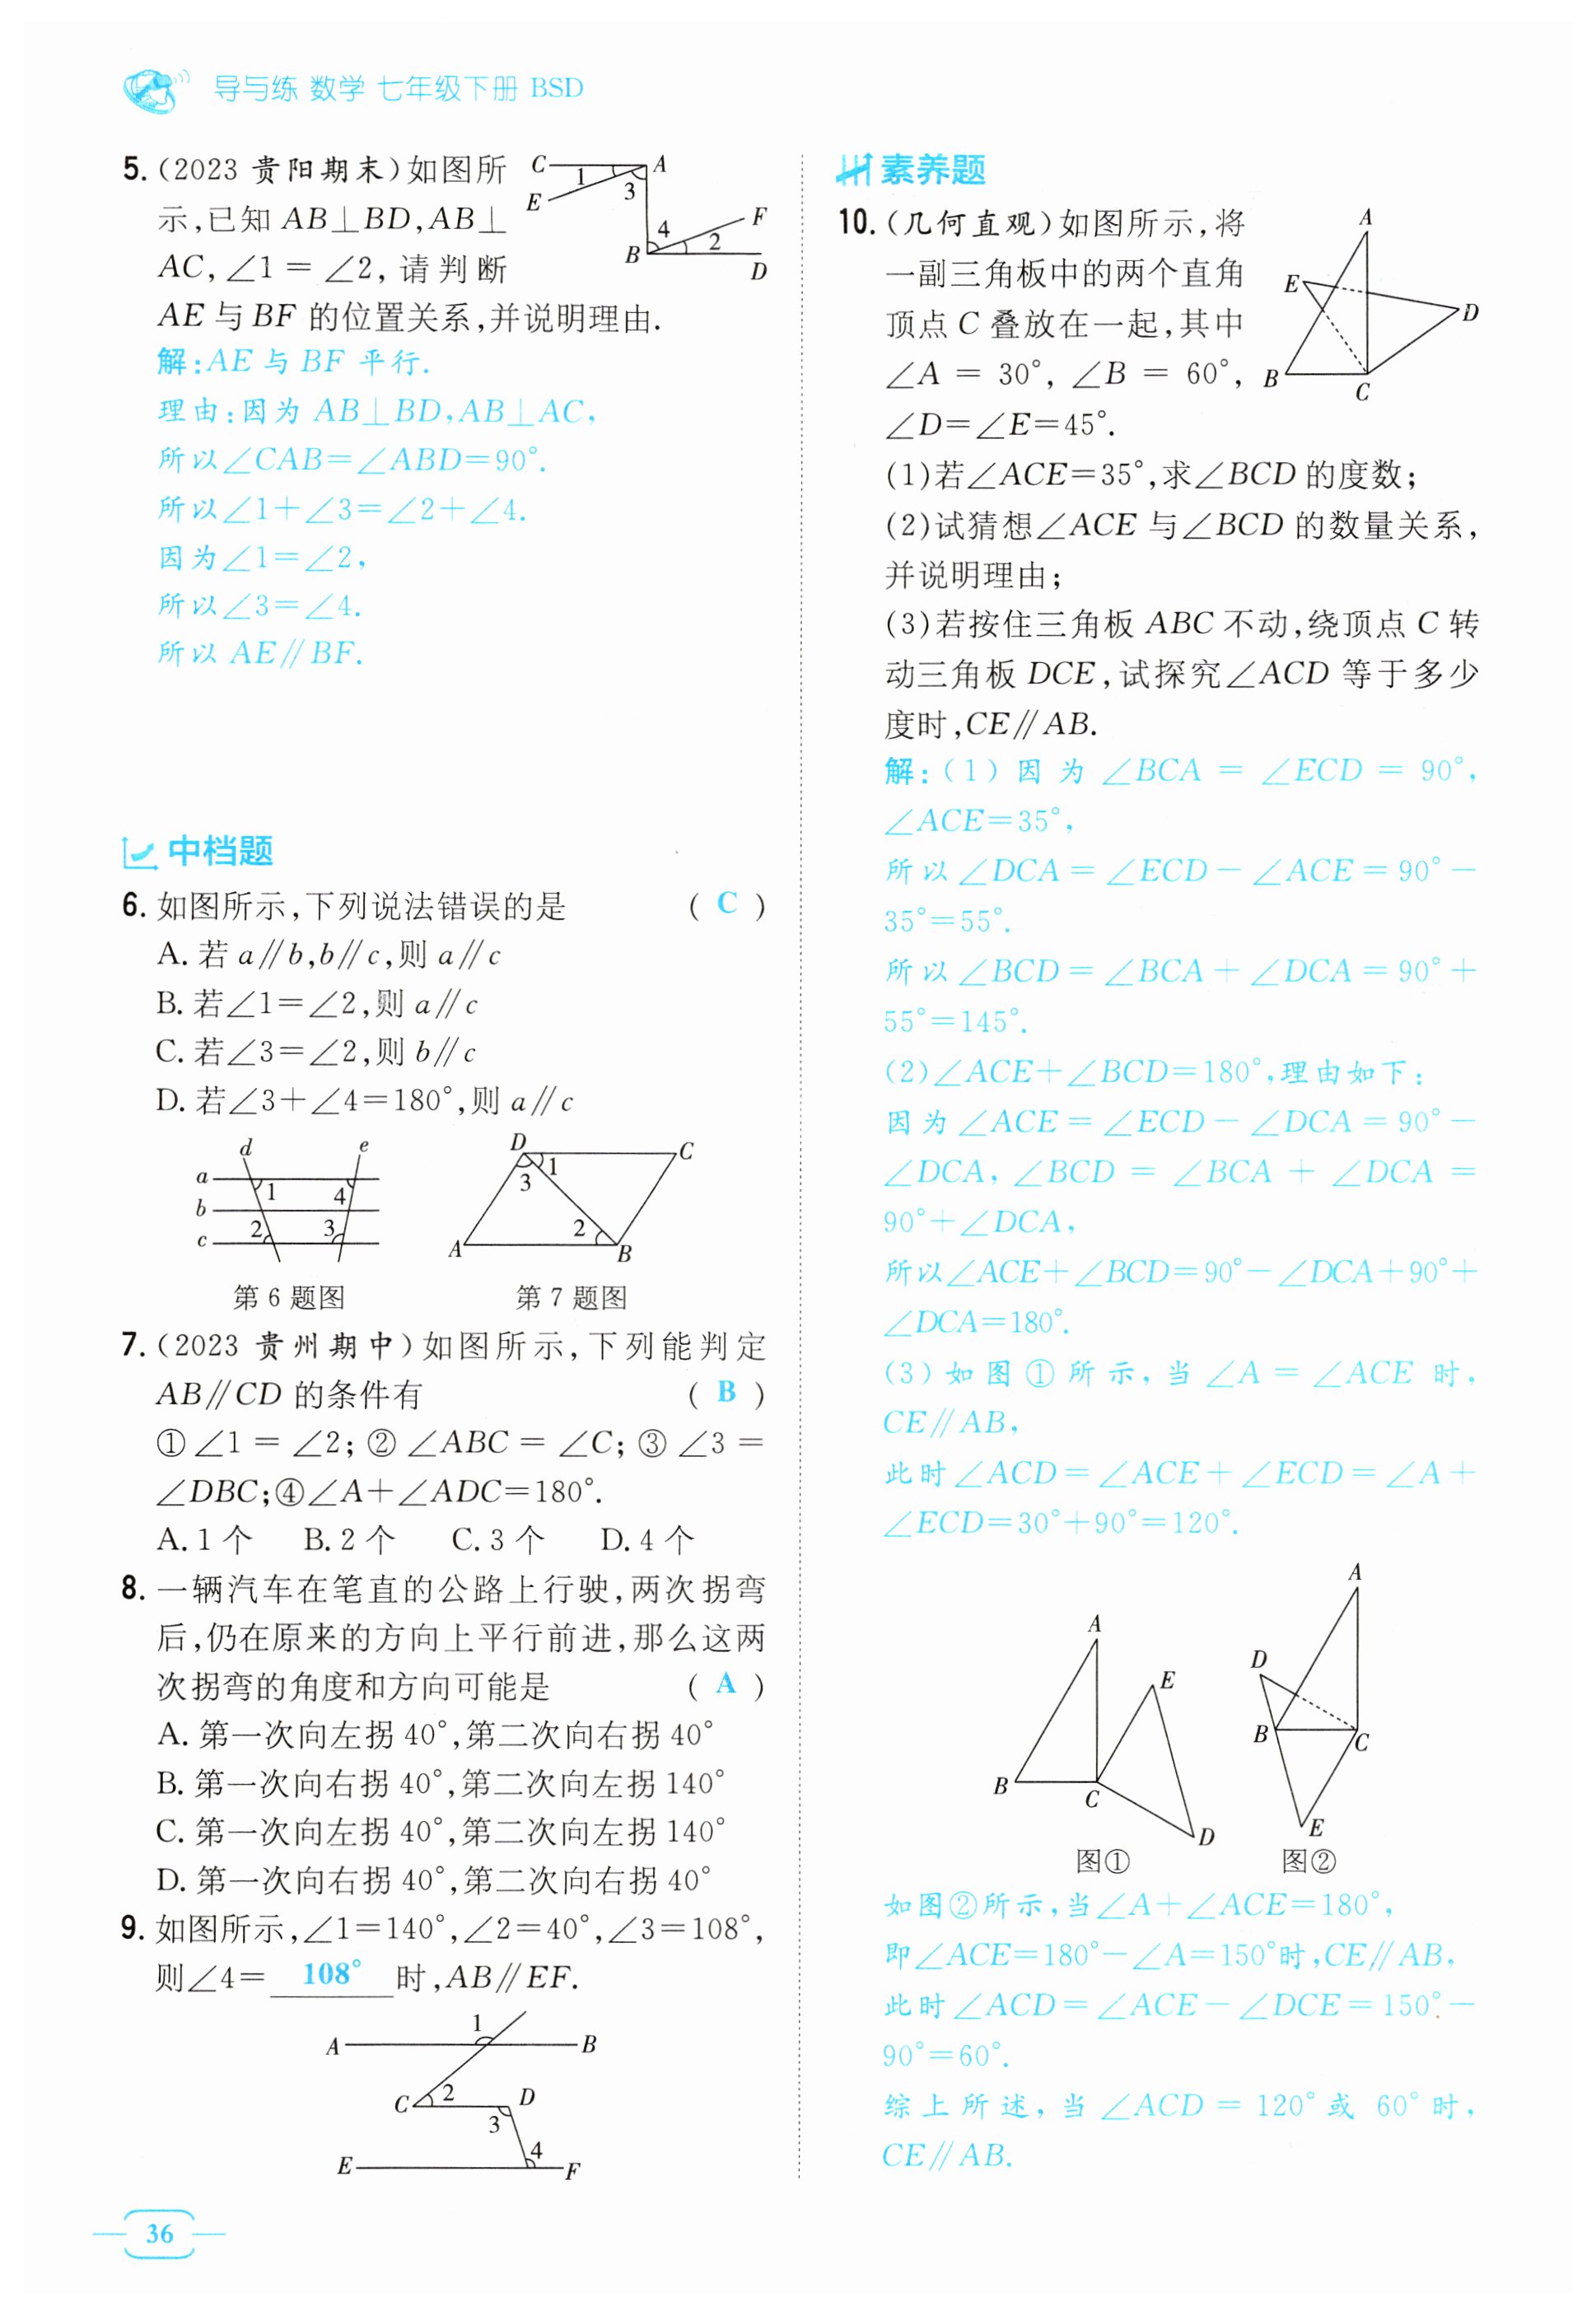 导与练 数学 七年级下册 BSD
5.(2023 贵阳期末)如图所
示,已知 AB⊥BD,AB⊥
AC,∠1=∠2,请判断
AE 与 BF 的位置关系,并说明理由.
C
A
1
E
3
F
4
2
B
D
解:AE 与 BF 平行.
理由:因为 AB⊥BD,AB⊥AC,
所以∠CAB=∠ABD=90°.
所以∠1+∠3=∠2+∠4.
因为∠1=∠2,
所以∠3=∠4.
所以 AE∥BF.
中档题
6. 如图所示,下列说法错误的是 ( C )
A. 若 a∥b,b∥c,则 a∥c
B. 若∠1=∠2,则 a∥c
C. 若∠3=∠2,则 b∥c
D. 若∠3+∠4=180°,则 a∥c
d e
a
1 4
b
2 3
c
第 6 题图
D C
1
3
2
A B
第 7 题图
7.(2023 贵州期中)如图所示,下列能判定
AB∥CD 的条件有 ( B )
①∠1=∠2;②∠ABC=∠C;③∠3=
∠DBC;④∠A+∠ADC=180°.
A. 1 个 B. 2 个 C. 3 个 D. 4 个
8. 一辆汽车在笔直的公路上行驶,两次拐弯
后,仍在原来的方向上平行前进,那么这两
次拐弯的角度和方向可能是 ( A )
A. 第一次向左拐 40°,第二次向右拐 40°
B. 第一次向右拐 40°,第二次向左拐 140°
C. 第一次向左拐 40°,第二次向左拐 140°
D. 第一次向右拐 40°,第二次向右拐 40°
9. 如图所示,∠1=140°,∠2=40°,∠3=108°,
则∠4= 108° 时,AB∥EF.
1
A B
C 2 D
3
4
E F
36
素养题
10.(几何直观)如图所示,将
一副三角板中的两个直角
顶点 C 叠放在一起,其中
∠A=30°,∠B=60°,
∠D=∠E=45°.
A
E
D
B
C
(1)若∠ACE=35°,求∠BCD 的度数;
(2)试猜想∠ACE 与∠BCD 的数量关系,
并说明理由;
(3)若按住三角板 ABC 不动,绕顶点 C 转
动三角板 DCE,试探究∠ACD 等于多少
度时,CE∥AB.
解:(1)因为∠BCA=∠ECD=90°,
∠ACE=35°,
所以∠DCA=∠ECD-∠ACE=90°-
35°=55°.
所以∠BCD=∠BCA+∠DCA=90°+
55°=145°.
(2)∠ACE+∠BCD=180°,理由如下:
因为∠ACE=∠ECD-∠DCA=90°-
∠DCA,∠BCD=∠BCA+∠DCA=
90°+∠DCA,
所以∠ACE+∠BCD=90°-∠DCA+90°+
∠DCA=180°.
(3)如图①所示,当∠A=∠ACE 时,
CE∥AB,
此时∠ACD=∠ACE+∠ECD=∠A+
∠ECD=30°+90°=120°.
A
E
B
C
D
图①
A
D
B
C
E
图②
如图②所示,当∠A+∠ACE=180°,
即∠ACE=180°-∠A=150°时,CE∥AB,
此时∠ACD=∠ACE-∠DCE=150°-
90°=60°.
综上所述,当∠ACD=120°或 60°时,
CE∥AB.